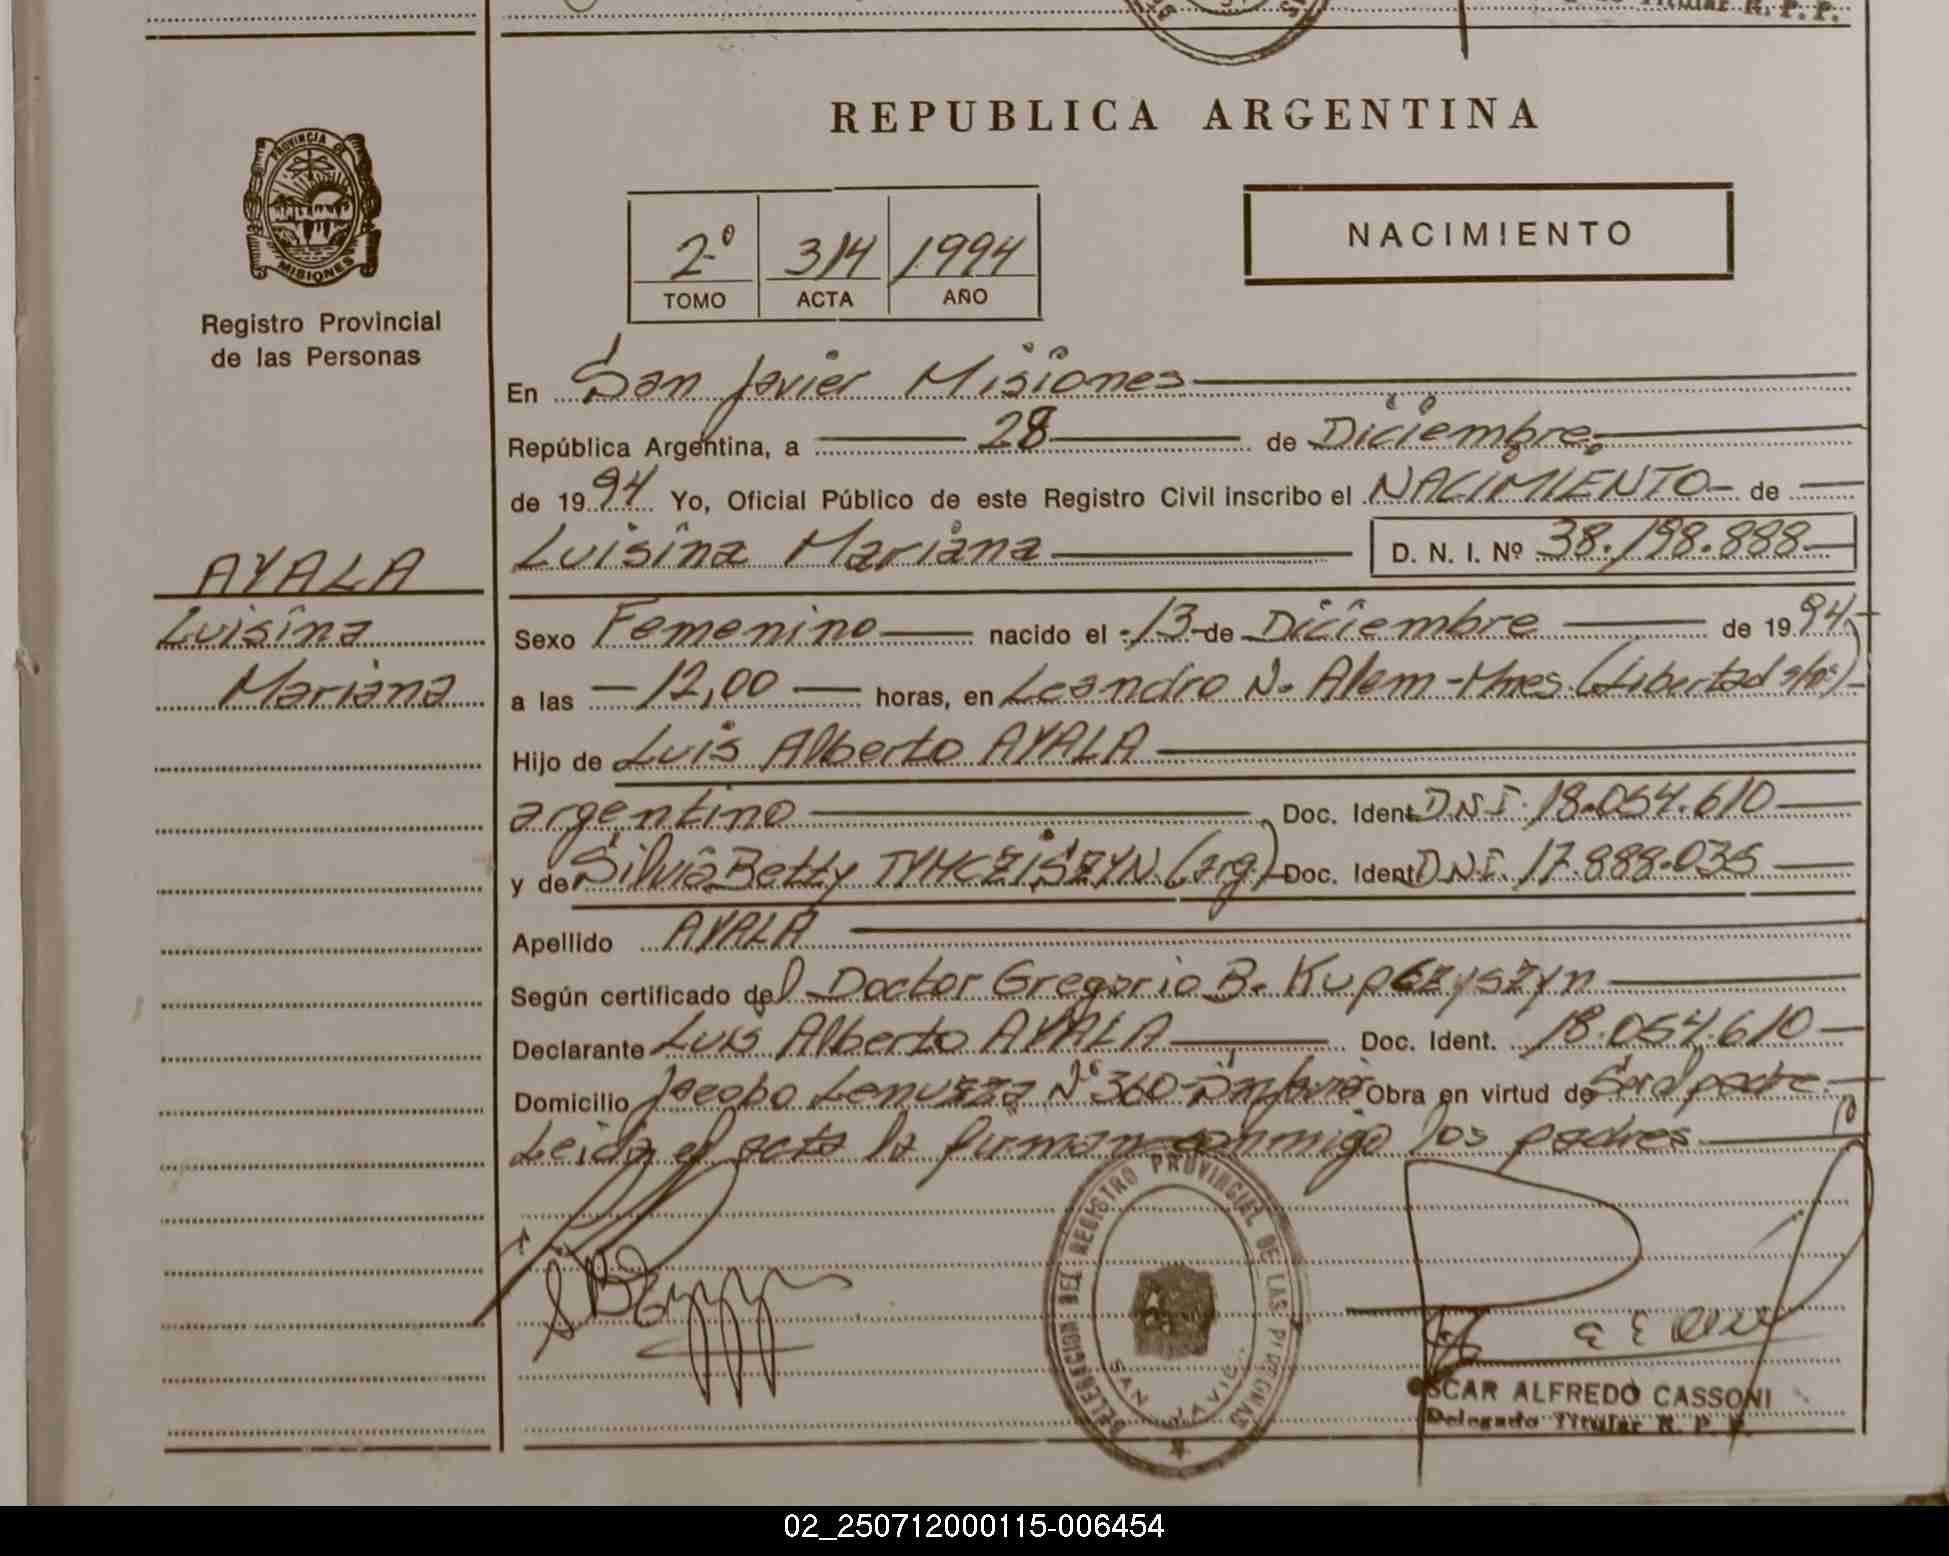 Titular R. P. P.
PROVINCIA DE
MISIONES
Registro Provincial
de las Personas
REPUBLICA ARGENTINA
2º 314 1994
TOMO ACTA AÑO
NACIMIENTO
En San Javier Misiones
República Argentina, a 28 de Diciembre
de 1994 Yo, Oficial Público de este Registro Civil inscribo el NACIMIENTO de
Luisina Mariana D. N. I. Nº 38.198.888
AYALA
Luisina
Mariana
Sexo Femenino nacido el 13 de Diciembre de 1994
a las 12,00 horas, en Leandro N. Alem - Mnes. (Libertad s/nº)
Hijo de Luis Alberto AYALA
argentino Doc. Ident. D.N.I. 18.054.610
y de Silvia Betty TYMCZISZYN (arg.) Doc. Ident. D.N.I. 17.888.035
Apellido AYALA
Según certificado del Doctor Gregorio B. Kupczyszyn
Declarante Luis Alberto AYALA Doc. Ident. 18.054.610
Domicilio Jacobo Nº 360 Obra en virtud de Ser el padre
Leida el acta la firman conmigo los padres
DELEGACION DEL REGISTRO PROVINCIAL DE LAS PERSONAS
SAN JAVIER
OSCAR ALFREDO CASSONI
Delegado Titular R. P. P.
02_250712000115-006454